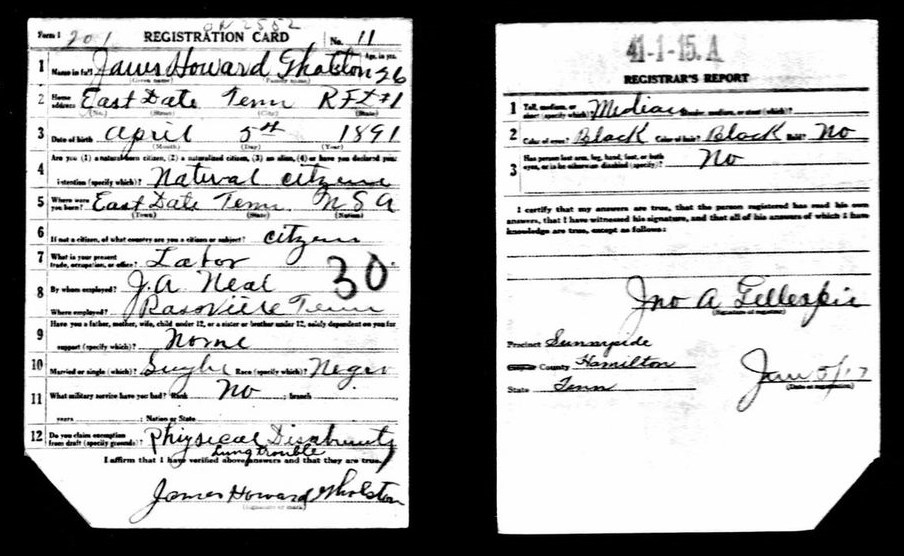 Form 1 201 REGISTRATION CARD No. 11
1 James Howard Gholston 26
Name in full (Given name) (Family name) Age, in yrs.
2 Home address East Date Tenn R.F.D #1
(No.) (Street) (City) (State)
3 Date of birth April 5th 1891
(Month) (Day) (Year)
4 Are you (1) a natural-born citizen, (2) a naturalized citizen, (3) an alien, (4) or have you declared your
intention (specify which)? Natural citizene
5 Where were you born? East Date Tenn U S A
(Town) (State) (Nation)
6 If not a citizen, of what country are you a citizen or subject? citzen
7 What is your present trade, occupation, or office? Labor 30
8 By whom employed? J.A Neal
Where employed? Tenn
9 Have you a father, mother, wife, child under 12, or a sister or brother under 12, solely dependent on you for
support (specify which)? None
10 Married or single (which)? Single Race (specify which)? Neger
11 What military service have you had? Rank No ; branch
years ; Nation or State
12 Do you claim exemption from draft (specify grounds)? Physical
Lung trouble
I affirm that I have verified above answers and that they are true.
James Howard Gholston
(Signature or mark)
41-1-15. A
REGISTRAR'S REPORT
1 Tall, medium, or short (specify which)? Median Slender, medium, or stout (which)?
2 Color of eyes? Black Color of hair? Black Bald? No
3 Has person lost arm, leg, hand, foot, or both eyes, or is he otherwise disabled (specify)? No
I certify that my answers are true, that the person registered has read his own
answers, that I have witnessed his signature, and that all of his answers of which I have
knowledge are true, except as follows:
Jno A Gillespie
(Signature of registrar)
Precinct Sunnyside
County Hamilton
State Tenn
Jun 5/17
(Date of registration)